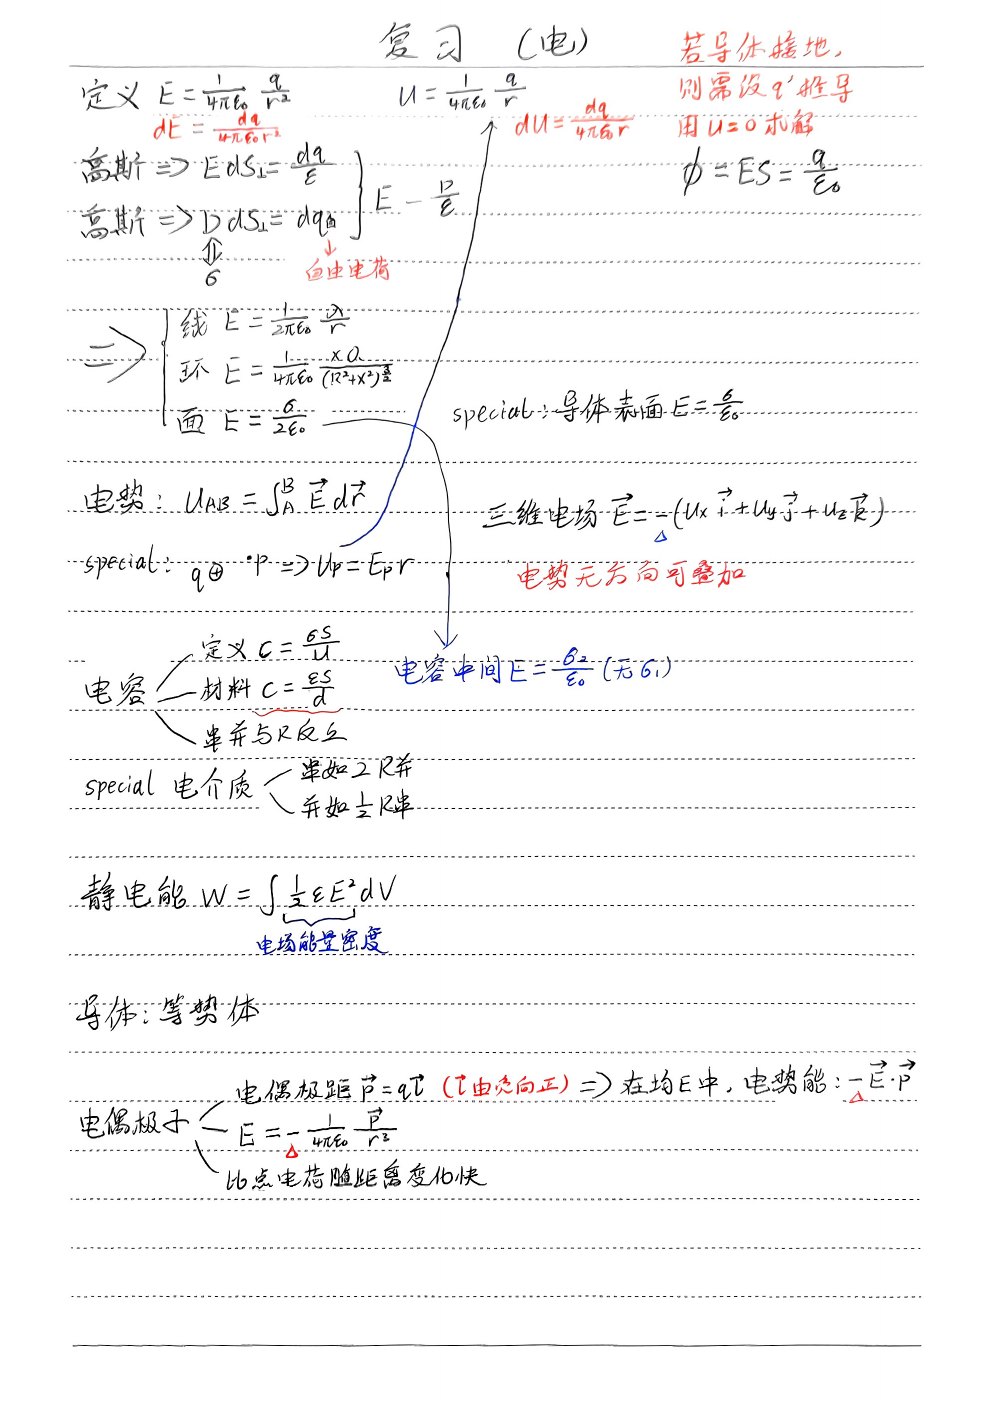 复习 (电)
若导体接地,
则需设q'推导
用U=0求解
定义 E = 1/4πε₀ q/r²
U = 1/4πε₀ q/r
dE = dq/4πε₀r²
dU = dq/4πε₀r
高斯 => E dS⊥ = dq/ε
高斯 => D dS⊥ = dq自
E - D/ε
Φ = ES = q/ε₀
↓
自由电荷
⇕
σ
=>
线 E = 1/2πε₀ λ/r
环 E = 1/4πε₀ xQ/(R²+x²)^(3/2)
面 E = σ/2ε₀
special: 导体表面 E = σ/ε₀
电势: U_AB = ∫_A^B E⃗ dr⃗
三维电场 E⃗ = -(Ux i⃗ + Uy j⃗ + Uz k⃗)
special: q⊕ ·P => Up = Ep r
电势无方向可叠加
电容
定义 C = σS/U
材料 C = εS/d
串并与R反立
电容中间 E = σ₂/ε₀ (无σ₁)
special 电介质
串如2R并
并如½R串
静电能 W = ∫ ½ εE² dV
电场能量密度
导体: 等势体
电偶极子
电偶极距 p⃗ = ql⃗ (l⃗由负向正) => 在均E中, 电势能: -E⃗·p⃗
E = - 1/4πε₀ p⃗/r²
比点电荷随距离变化快